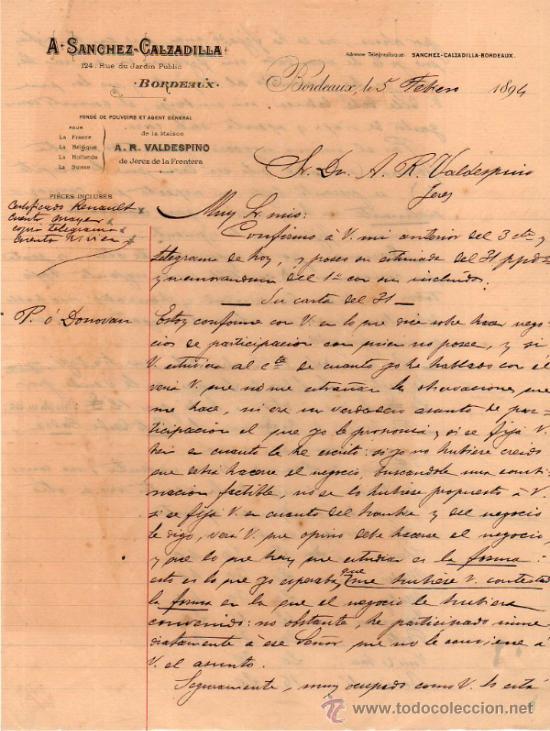 A. SANCHEZ-CALZADILLA
124, Rue du Jardin Public
BORDEAUX
Adresse Télégraphique: SANCHEZ-CALZADILLA-BORDEAUX.
Bordeaux, le 5 Febrero 1894
FONDÉ DE POUVOIRS ET AGENT GÉNÉRAL
POUR
La France
La Belgique
La Hollande
La Suisse
de la Maison
A. R. VALDESPINO
de Jerez de la Frontera
Sr. Dn. A. R. Valdespino
Jerez
PIÈCES INCLUSES
Certificado Renault
Cuenta Mayer
copia telegrama
cuenta Vivier
Muy Sr. mio:
Confirmo à V. mi anterior del 3 cte y
telegrama de hoy, y poseo su estimada del 31 ppdo
y memorandum del 1º con su incluido:
— Su carta del 31 —
P. ó Donovan
Estoy conforme con V. en lo que dice sobre hacer nego-
cios de participacion con quien no posea, y si
V. estudia el cte de cuanto yo he hablado con el
verá V. que no me extrañan las observaciones que
me hace, ni era un verdadero asunto de par-
ticipacion el que yo le proponia y si se fija V.
bien en cuanto le he escrito: si yo no hubiere creido
que debia hacerse el negocio, buscandole una combi-
nacion factible, no se lo hubiere propuesto à V.
si se fija V. en cuanto del hombre y del negocio
le digo, verá V. que opino debe hacerse el negocio,
y que lo que hay que estudiar es la forma:
esto es lo que yo esperaba, que me hubiere V. contestado
la forma en la que el negocio le hubiera
convenido: no obstante, he participado inme-
diatamente à ese Señor que no le conviene à
V. el asunto.
Seguramente, muy ocupado como V. lo está
todocoleccion
www.todocoleccion.net